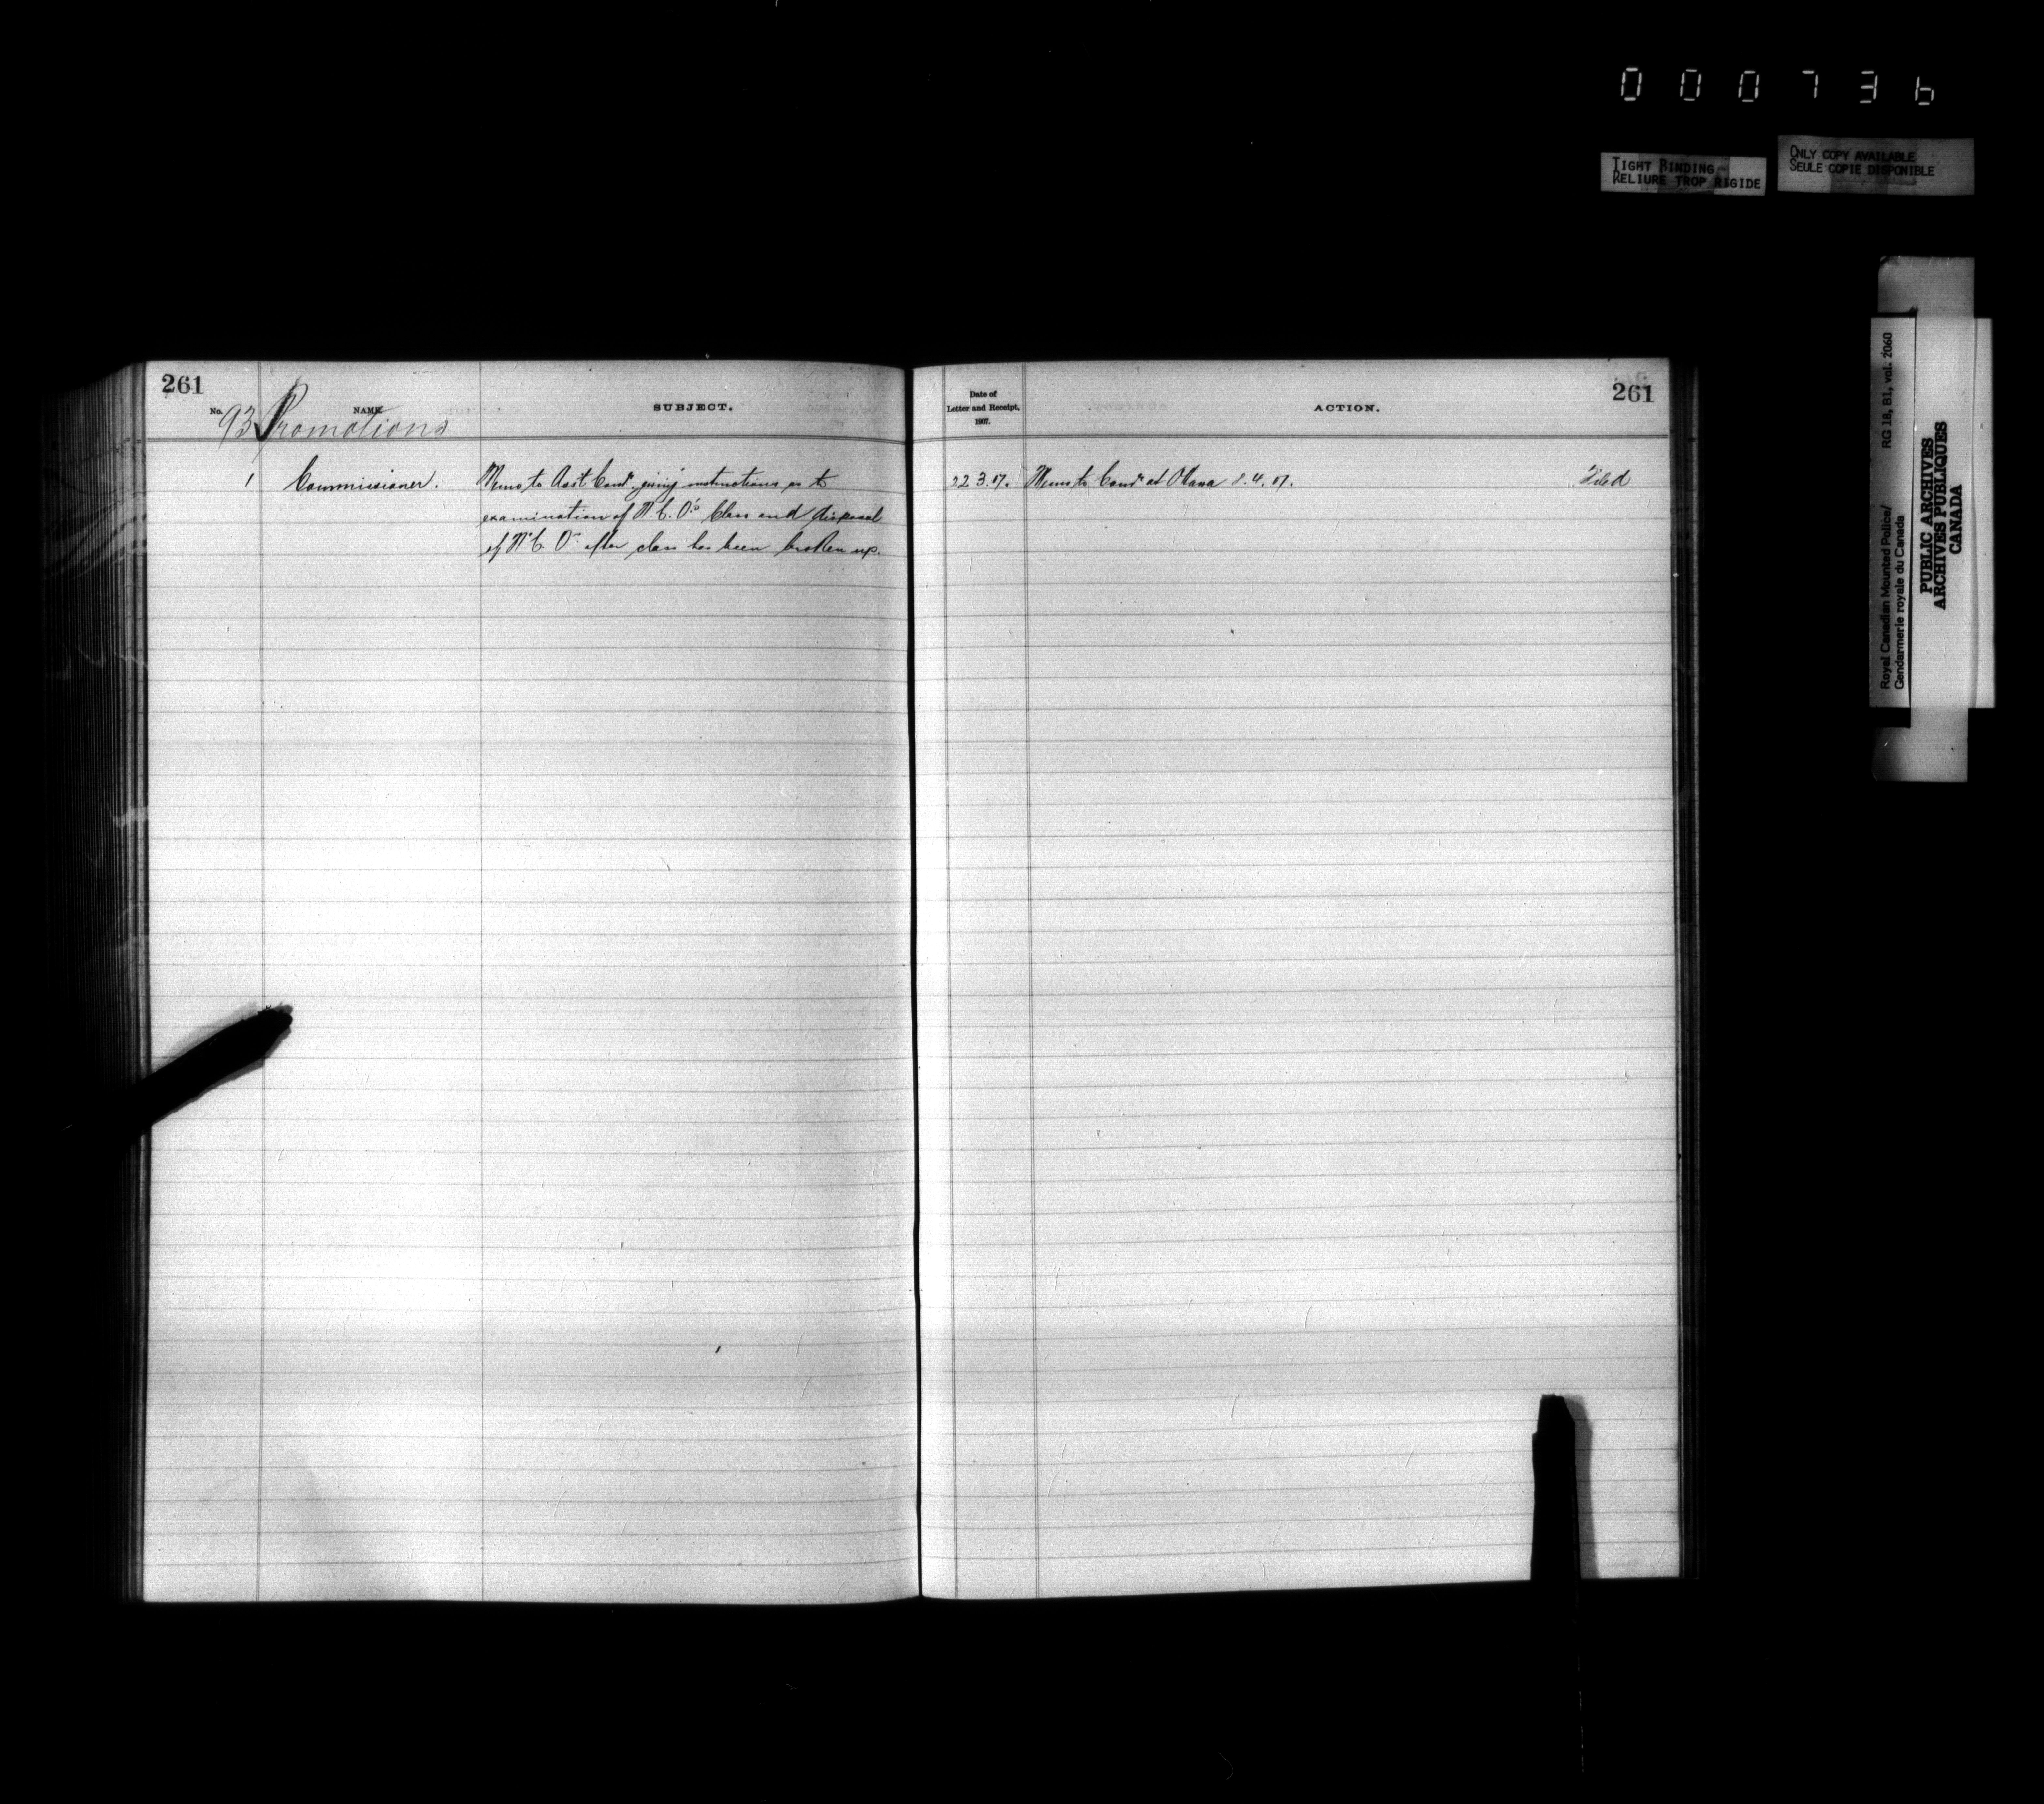 000736
TIGHT BINDING
RELIURE TROP RIGIDE
ONLY COPY AVAILABLE
SEULE COPIE DISPONIBLE
Royal Canadian Mounted Police/ RG 18, B1, vol. 2060
Gendarmerie royale du Canada
PUBLIC ARCHIVES
ARCHIVES PUBLIQUES
CANADA
261
No. NAME. SUBJECT.
93 Promotions
1 Commissioner. Memo to Asst Comr. giving instructions as to
examination of N.C.O's Class and disposal
of N.C.Os after class has been broken up.
261
Date of
Letter and Receipt,
1907.
ACTION.
22.3.07. Memo to Comr at Ottawa 8.4.07. Filed